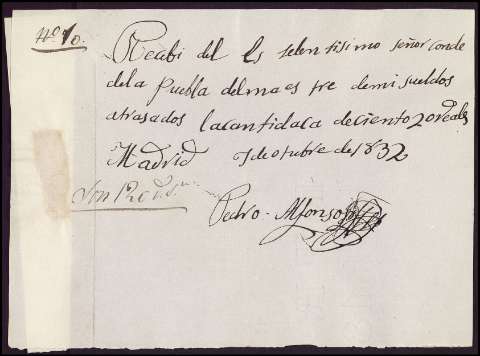 Nº 10.
Recibi del Es selentisimo señor conde
dela Puebla delmaes tre demi sueldos
atrasados lacantidaca deciento 20 reales
Madrid 9 deotubre de 1832
Son 120
Pedro Alfonso